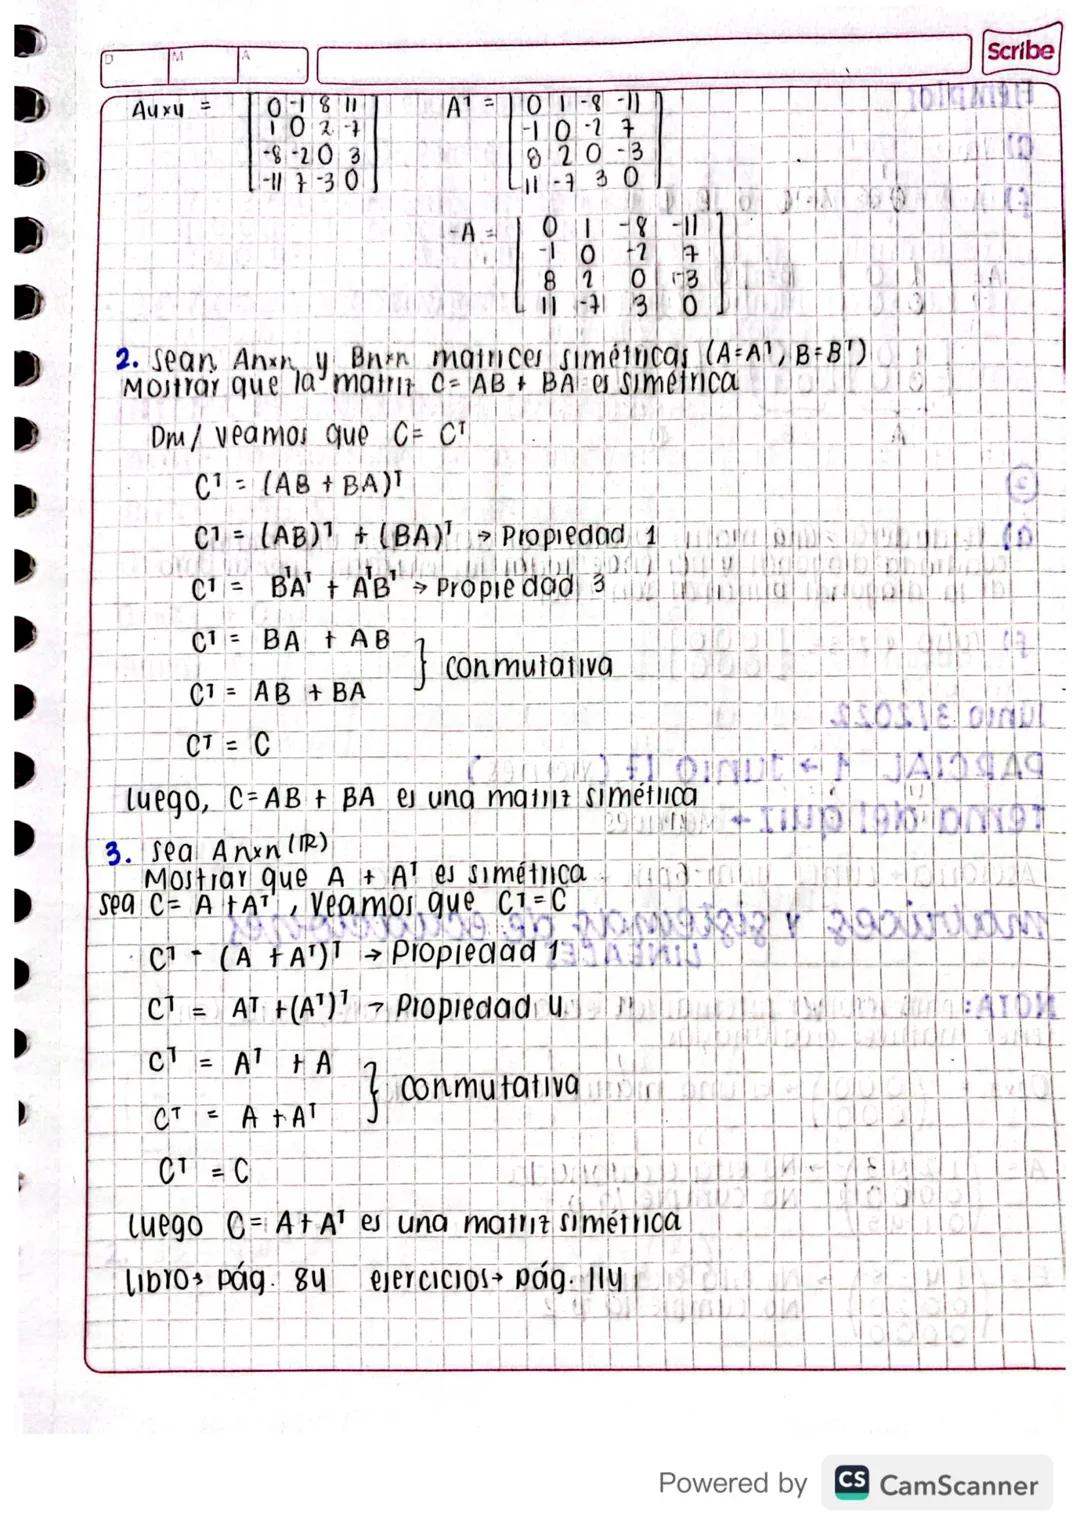 D M A
Scribe
A4x4 = [0 -1 8 11 A^T = [0 1 -8 -11
1 0 2 -7 -1 0 -2 7
-8 -2 0 3 8 2 0 -3
-11 7 -3 0] 11 -7 3 0]
-A = [0 1 -8 -11
-1 0 -2 7
8 2 0 -3
11 -7 3 0]
2. Sean Anxn y Bnxn matrices simétricas (A=A^T, B=B^T)
Mostrar que la matriz C= AB + BA es simétrica
Dm/ veamos que C= C^T
C^T = (AB + BA)^T
C^T = (AB)^T + (BA)^T → Propiedad 1
C^T = B^TA^T + A^TB^T → Propiedad 3
C^T = BA + AB
} conmutativa
C^T = AB + BA
C^T = C
luego, C=AB + BA es una matriz simétrica
3. Sea Anxn (IR)
Mostrar que A + A^T es simétrica
sea C= A +A^T, Veamos que C^T=C
C^T = (A +A^T)^T → Propiedad 1
C^T = A^T +(A^T)^T → Propiedad 4
C^T = A^T + A
} conmutativa
C^T = A +A^T
C^T = C
luego C= A+A^T es una matriz simétrica
libro→ pág. 84 ejercicios→ pág. 114
Powered by CS CamScanner